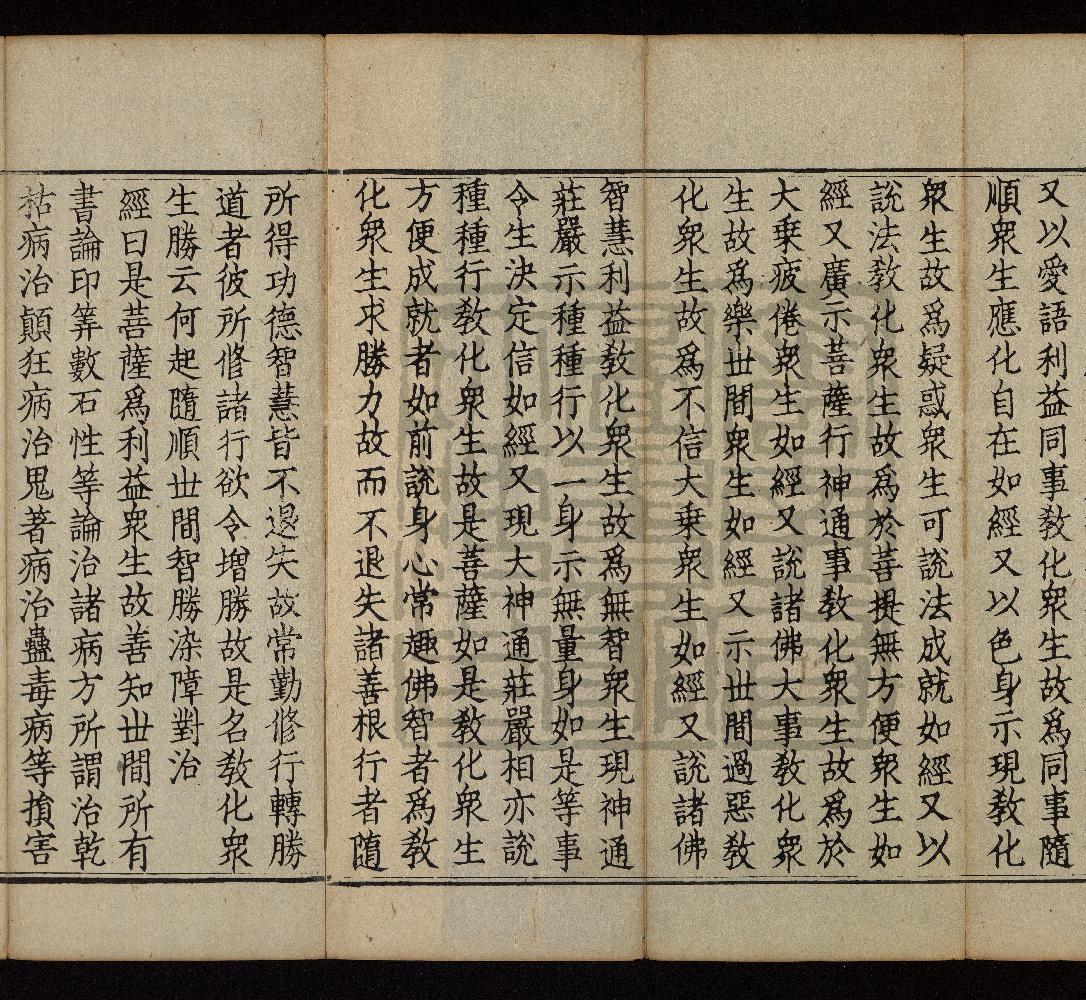 又以愛語利益同事敎化衆生故爲同事隨
順衆生應化自在如經又以色身示現敎化
衆生故爲疑惑衆生可説法成就如經又以
説法敎化衆生故爲於菩提無方便衆生如
經又廣示菩薩行神通事敎化衆生故爲於
大乗疲倦衆生如經又説諸佛大事敎化衆
生故爲樂丗間衆生如經又示丗間過惡敎
化衆生故爲不信大乗衆生如經又説諸佛
智慧利益敎化衆生故爲無智衆生現神通
莊嚴示種種行以一身示無量身如是等事
令生決定信如經又現大神通莊嚴相亦説
種種行敎化衆生故是菩薩如是敎化衆生
方便成就者如前説身心常趣佛智者爲敎
化衆生求勝力故而不退失諸善根行者隨
所得功德智慧皆不退失故常勤修行轉勝
道者彼所修諸行欲令增勝故是名敎化衆
生勝云何起隨順丗間智勝染障對治
經曰是菩薩爲利益衆生故善知丗間所有
書論印筭數石性等論治諸病方所謂治乾
枯病治顚狂病治鬼著病治蠱毒病等損害